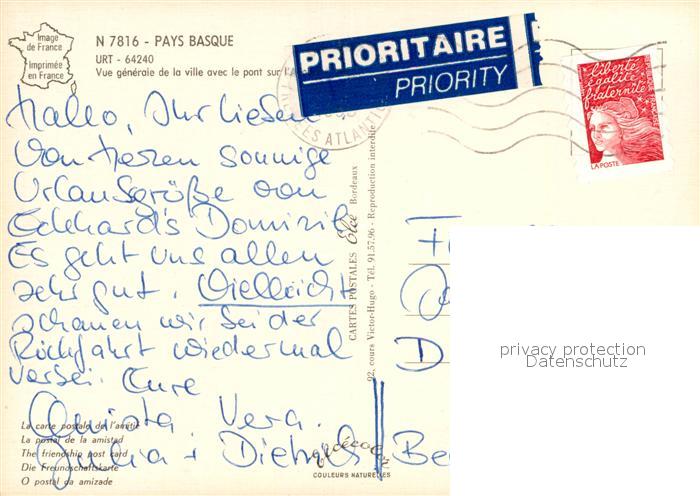 Image
de France
Imprimée
en France
N 7816 - PAYS BASQUE
URT - 64240
Vue générale de la ville avec le pont sur l'A
PRIORITAIRE
PRIORITY
ES ATLANTI
liberté
égalité
fraternité
LA POSTE
Hallo, Ihr lieben
Von Herzen sonnige
Urlaubsgrüße von
Eckhard's Domizil
Es geht uns allen
sehr gut. Vielleicht
schauen wir bei der
Rückfahrt wiedermal
vorbei. Eure
Christa Vera
Julia + Dieter
CARTES POSTALES Elcé Bordeaux
92, cours Victor-Hugo - Tél. 91.57.96 - Reproduction interdite
F
D
Be
privacy protection
Datenschutz
La carte postale de l'amitié
La postal de la amistad
The friendship post card
Die Freundschaftskarte
O postal da amizade
COULEURS NATURELLES